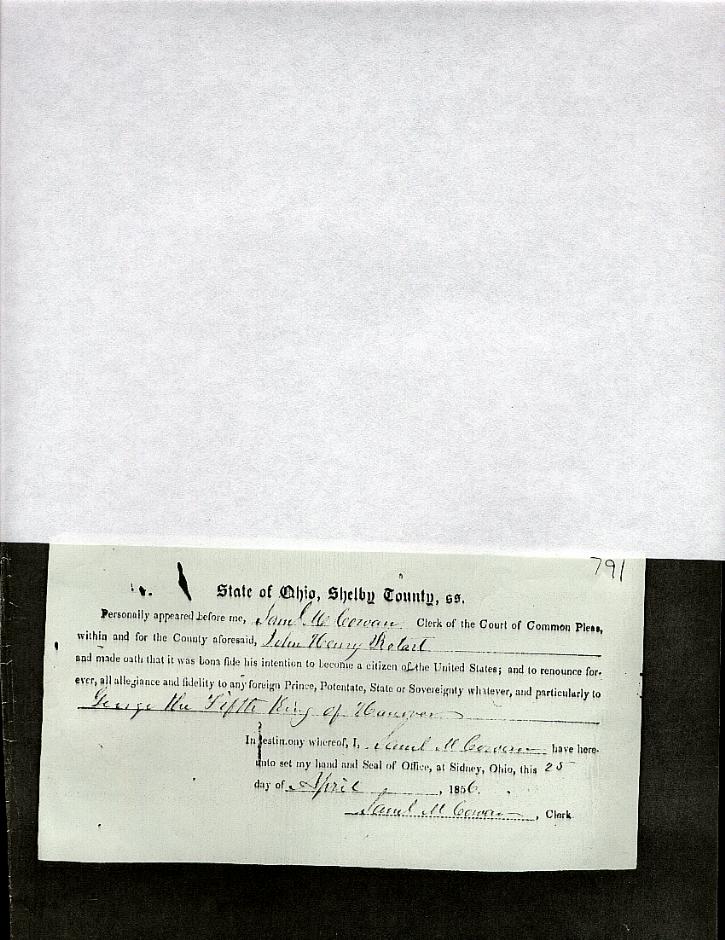 791
State of Ohio, Shelby County, ss.
Personally appeared before me, Saml McCowan Clerk of the Court of Common Pleas,
within and for the County aforesaid, John Henry
and made oath that it was bona fide his intention to become a citizen of the United States; and to renounce for-
ever, all allegiance and fidelity to any foreign Prince, Potentate, State or Sovereignty whatever, and particularly to
George the Fifth King of Hanover
In testimony whereof, I, Samil McCowan have here-
unto set my hand and Seal of Office, at Sidney, Ohio, this 25
day of April, 1856.
Samil McCowan, Clerk